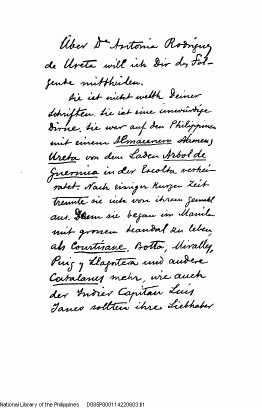 Über Dª Antonia Rodriguez
de Ureta will ich Dir das Fol-
gende mittheilen.
Sie ist nicht werth Deiner
Schriften. Sie ist eine unwürdige
Dirne. Sie war auf den Philippinen
mit einem Almacenero Ximenes
Ureta von dem Laden Arbol de
Guernica in der Escolta verhei-
ratet. Nach einiger kurzen Zeit
trennte sie sich von ihrem Gemahl
aus. Denn sie begann in Manila
mit grossem Skandal zu leben,
als Courtisane, Botta, Miralles,
Puig y Llagostera und andere
Catalanes mehr, wie auch
der Indier Capitan Luis
Yanco sollten ihre Liebhaber
National Library of the Philippines DS85P00011422060381